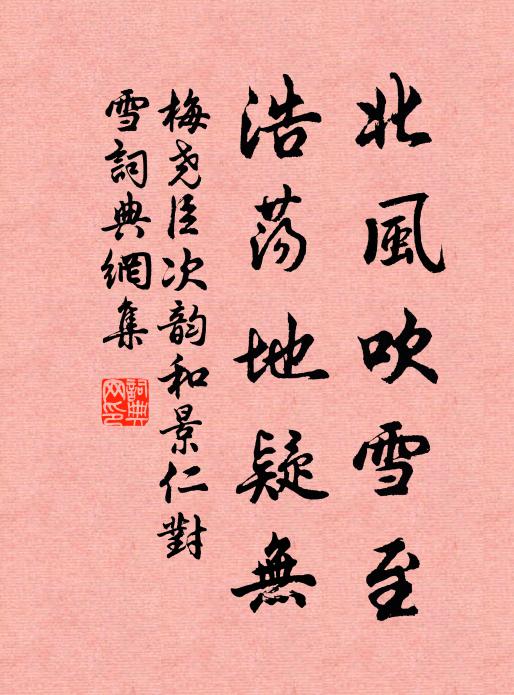 北風吹雪至
浩蕩地疑無
梅尧臣次韵和景仁對
雪詞典網集
詞典
网印